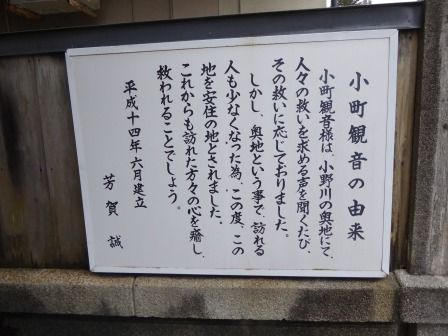 小町観音の由来
小町観音様は、小野川の奥地にて、
人々の救いを求める声を聞くたび、
その救いに応じておりました。
しかし、奥地という事で、訪れる
人も少なくなった為、この度、この
地を安住の地とされました。
これからも訪れた方々の心を癒し、
救われることでしょう。
平成十四年六月建立
芳賀 誠